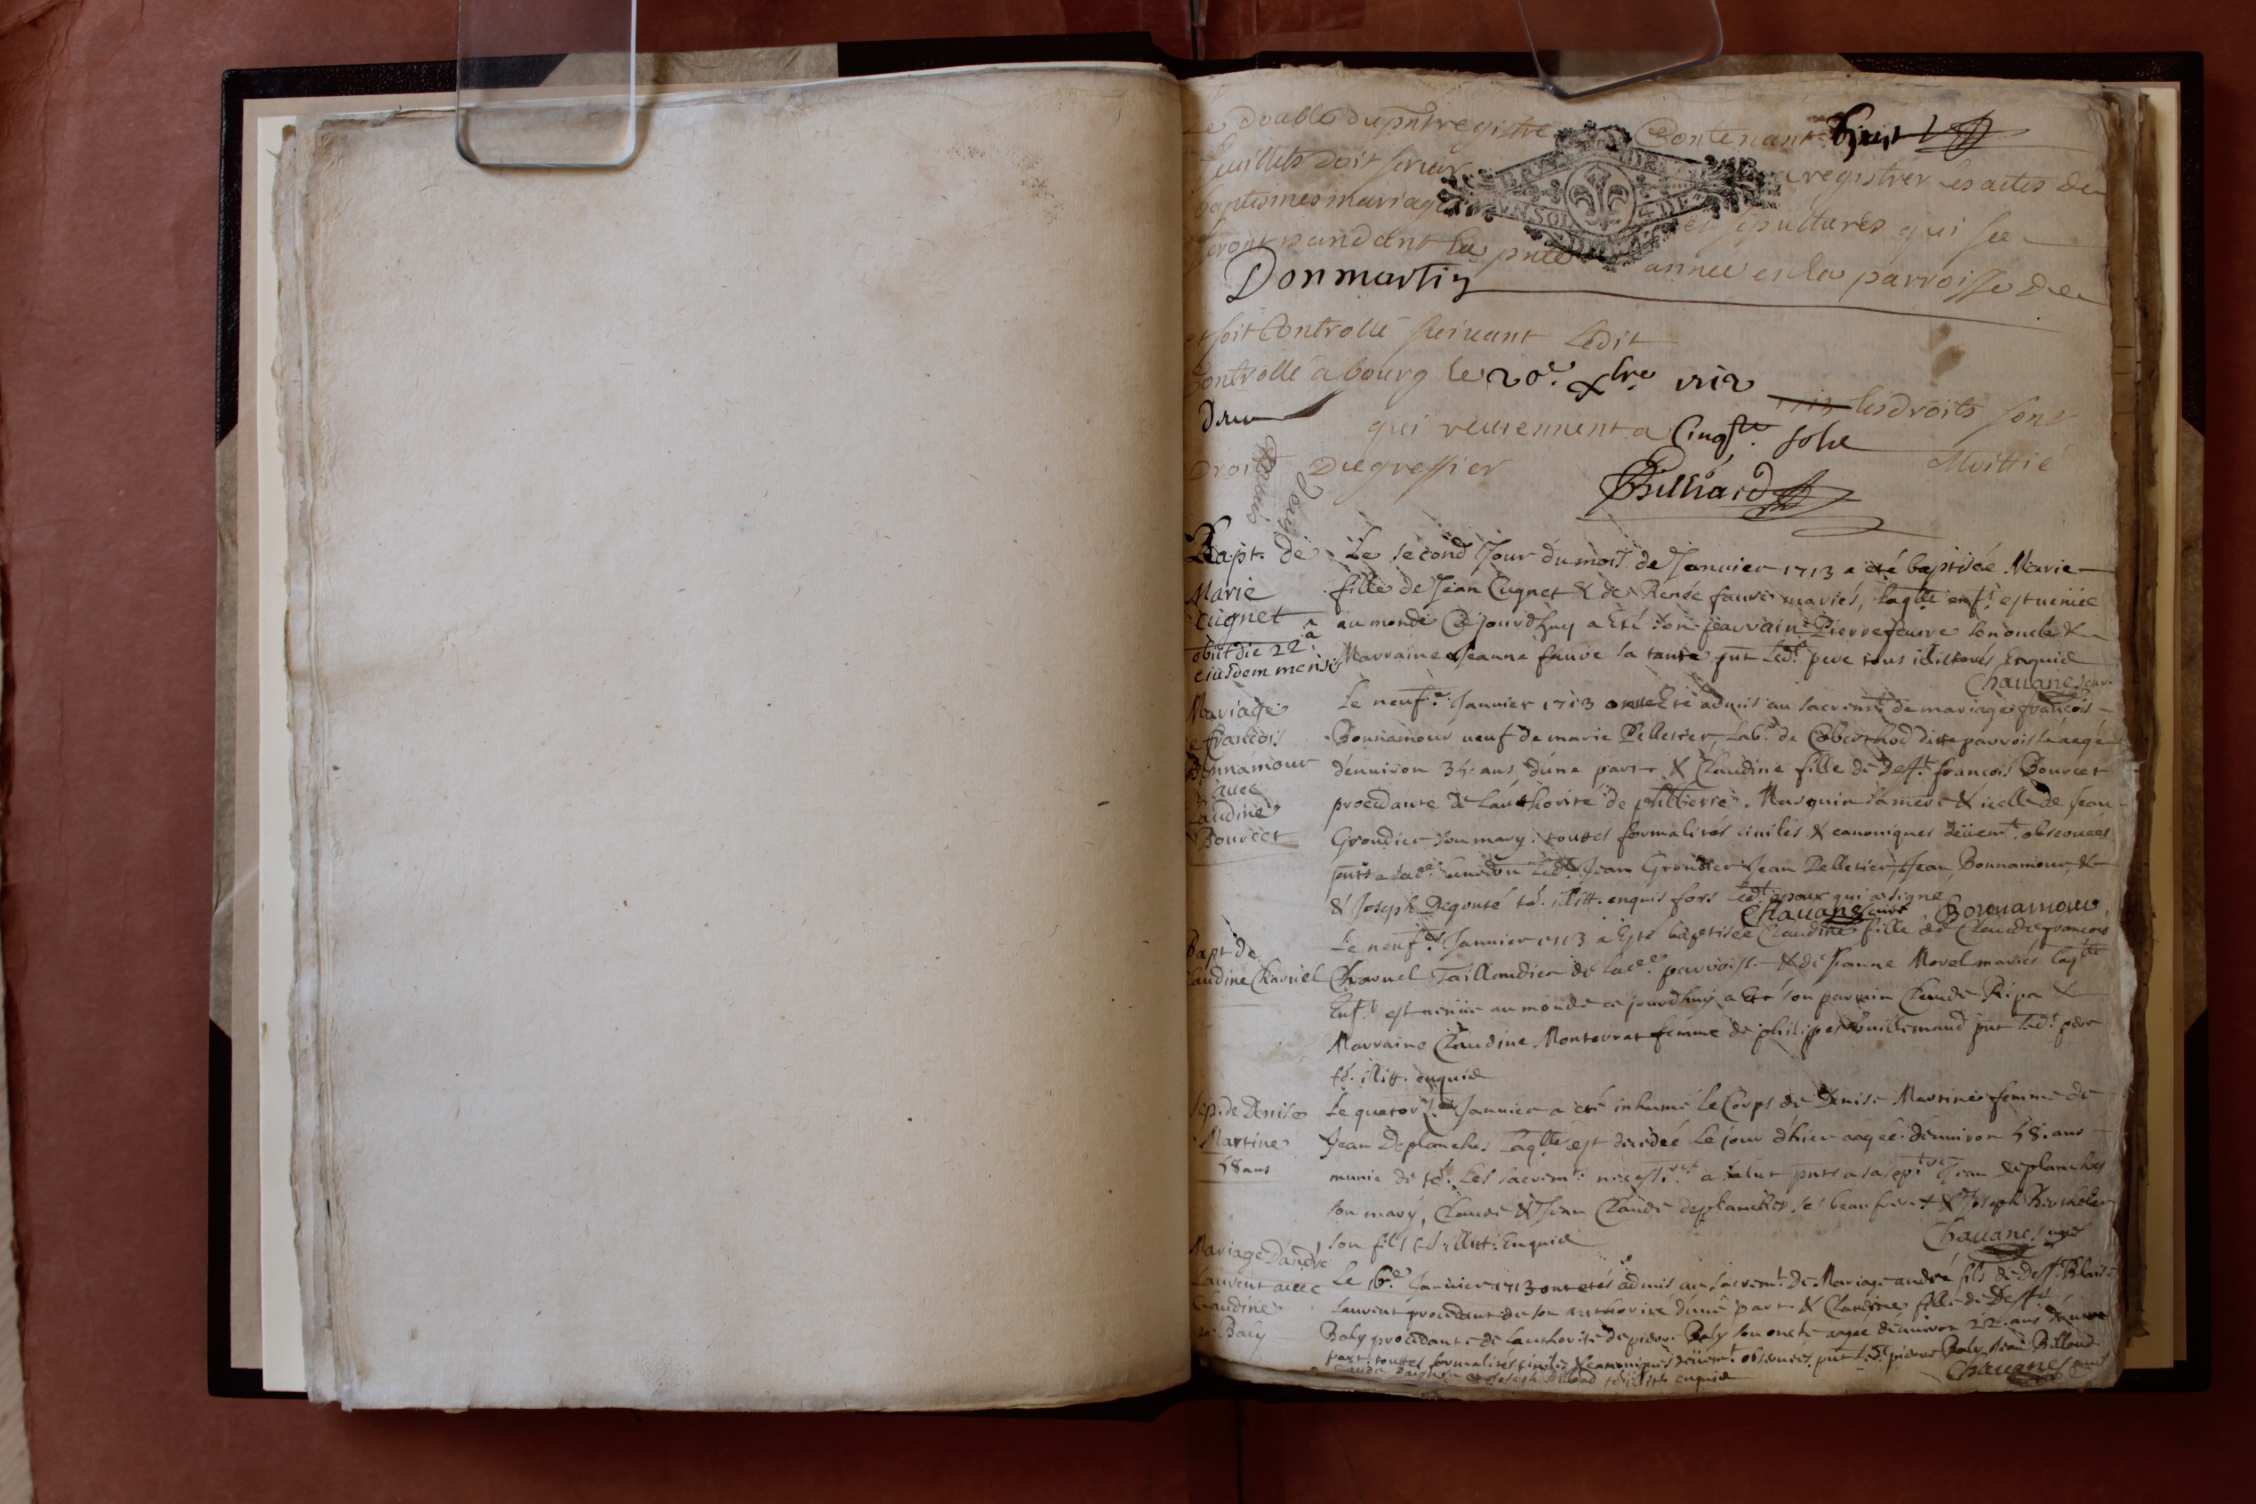 Le double du pnt registre Contenant huit
feuillets doit servir a registrer les actes de
baptesmes mariages et sepultures qui se
feront pandant la pnte année en la parroisse de
Donmartin
et soit Controllé suivant Ledit
Controllé a bourg le 20e. xbre 1712
les droits sont
deux qui reviennent a Cinq solz
Droit Du greffier Moittié
Billiard
Bapt. de
Marie
Cugnet
obiit die 22a
eiusdem mensis
Le second Jour du mois de Janvier 1713 a eté baptisée Marie
fille de Jean Cugnet & de Renée fauvre mariés, laqlle enft est venüe
au monde Ce jourdhuy a Eté son parrain Pierre fauvre son oncle &
Marraine Jeanne fauvre sa tante pnt Ledt pere tous illiterés Enquis
Chavanes curé
Mariage
de françois
Bonnamour
avec
Claudine
Bourcet
Le neufe. Janvier 1713 ont Eté admis au sacremt de mariage françois
Bonnamour veuf de marie Pelletier, Labr. de ditte parroisse aagé
denviron 34. ans, dune part & Claudine fille de defft. françois Bourcet
procedante de Lauthorité de philiberte Masquin sa mere & icelle de Jean
Grondier son mary. touttes formalités civiles & canoniques düemt. observées
pnts a lade. Ledt. Jean Grondier Jean Pelletier, Jean Bonnamour, &
& Joseph Degouté ts. illitt. enquis fors Ledt. epoux qui a signé
Chavanes curé Bonnamour
Bapt de
Claudine Charvel
Le neufe. Janvier 1713 a Eté baptisée Claudine fille de Claude françois
Charvel Taillandier de lade. parroisse & de Jeanne Morel mariés laqlle
Enft. est venüe au monde ce jourdhuy a Eté son parrin Claude Ripa &
Marraine Claudine Montevrat femme de philipes Vuillemaud pnt Ledt. pere
ts. illitt. enquis
Sep. de Denise
Martine
58 ans
Le quatorze. Janvier a eté inhumé le Corps de Denise Martine femme de
Jean Deplanches Laqlle est decedée Le jour dhier aagée denviron 58. ans
munie de ts. Les sacremts. necess. a salut pnts a sa sept. Jean deplanches
son mary, Claude & Jean Claude deplanches ses beau freres & Joseph
son fils ts. illitt. Enquis
Chavanes curé
Mariage Dandré
Laurent avec
Claudine
Baly
Le 16e. Janvier 1713 ont etés admis au sacremt. de Mariage andré fils de defft. Blaise
Laurent procedant de son authorité dune part & Claudine fille de Defft.
Baly procedante de lauthorité de pierre Baly son oncle aagée denviron 22. ans
part. touttes formalités civiles & canoniques düemt. observées, pnt Ledt. pierre Baly, Jean Billoud
Joseph Billoud ts. illitt. enquis
Chavanes curé